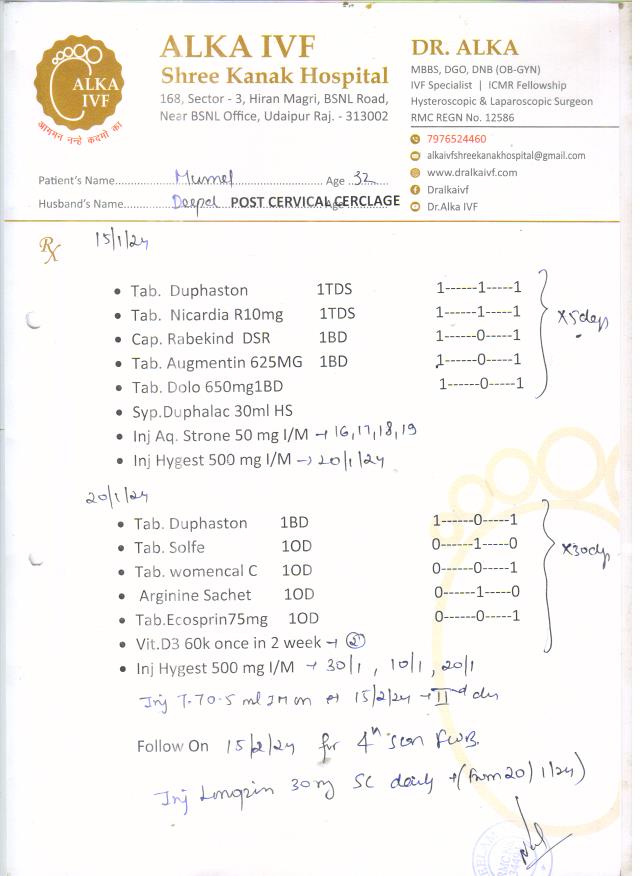 ALKA IVF
Shree Kanak Hospital
168, Sector - 3, Hiran Magri, BSNL Road,
Near BSNL Office, Udaipur Raj. - 313002
ALKA
IVF
आगमन नन्हे कदमों का
DR. ALKA
MBBS, DGO, DNB (OB-GYN)
IVF Specialist | ICMR Fellowship
Hysteroscopic & Laparoscopic Surgeon
RMC REGN No. 12586
7976524460
alkaivfshreekanakhospital@gmail.com
www.dralkaivf.com
Dralkaivf
Dr.Alka IVF
Patient's Name.......... Age 32
Husband's Name.......... POST CERVICAL CERCLAGE
Rx 15/1/24
• Tab. Duphaston 1TDS 1------1-----1
• Tab. Nicardia R10mg 1TDS 1------1-----1
• Cap. Rabekind DSR 1BD 1------0-----1
• Tab. Augmentin 625MG 1BD 1------0-----1
• Tab. Dolo 650mg1BD 1------0-----1
x5days
• Syp.Duphalac 30ml HS
• Inj Aq. Strone 50 mg I/M → 16,17,18,19
• Inj Hygest 500 mg I/M → 20/1/24
20/1/24
• Tab. Duphaston 1BD 1------0-----1
• Tab. Solfe 1OD 0------1-----0
• Tab. womencal C 1OD 0------0-----1
• Arginine Sachet 1OD 0------1-----0
• Tab.Ecosprin75mg 1OD 0------0-----1
x30dys
• Vit.D3 60k once in 2 week →
• Inj Hygest 500 mg I/M → 30/1, 10/1, 20/1
Inj T.T 0.5 ml IM on 15/2/24 → IInd
Follow On 15/2/24 for 4th scan FWB.
Inj Lonopin 30mg SC daily → (from 20/1/24)